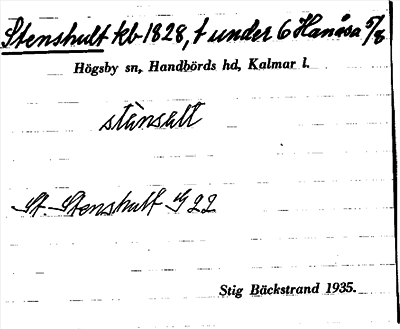 Stenshult kb 1828, t under 6 Hanåsa 5/8
Högsby sn, Handbörds hd, Kalmar l.
stànsalt
St. Stenshult G 22
Stig Bäckstrand 1935.